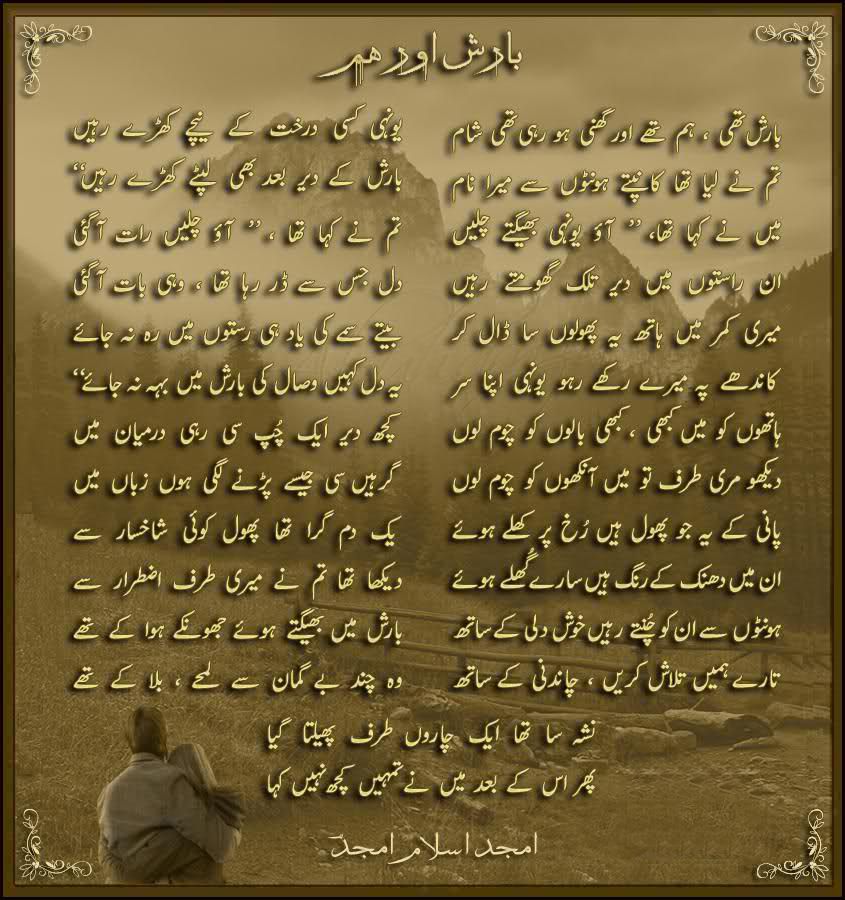 بارش اور ہم
بارش تھی ، ہم تھے اور گھنی ہو رہی تھی شام
تم نے لیا تھا کانپتے ہونٹوں سے میرا نام
میں نے کہا تھا، ’’ آؤ یونہی بھیگتے چلیں
ان راستوں میں دیر تلک گھومتے رہیں
میری کمر میں ہاتھ یہ پھولوں سا ڈال کر
کاندھے پہ میرے رکھے رہو یونہی اپنا سر
ہاتھوں کو میں کبھی ، کبھی بالوں کو چوم لوں
دیکھو مری طرف تو میں آنکھوں کو چوم لوں
پانی کے یہ جو پھول ہیں رُخ پر کھلے ہوئے
ان میں دھنک کے رنگ ہیں سارے گُھلے ہوئے
ہونٹوں سے ان کو چُنتے رہیں خوش دلی کے ساتھ
تارے ہمیں تلاش کریں ، چاندنی کے ساتھ
یونہی کسی درخت کے نیچے کھڑے رہیں
بارش کے دیر بعد بھی لپٹے کھڑے رہیں‘‘
تم نے کہا تھا ، ’’ آؤ چلیں رات آگئی
دل جس سے ڈر رہا تھا ، وہی بات آگئی
بیتے سمے کی یاد ہی رستوں میں رہ نہ جائے
یہ دل کہیں وصال کی بارش میں بہہ نہ جائے‘‘
کچھ دیر ایک چُپ سی رہی درمیان میں
گرہیں سی جیسے پڑنے لگی ہوں زباں میں
یک دم گرا تھا پھول کوئی شاخسار سے
دیکھا تھا تم نے میری طرف اضطرار سے
بارش میں بھیگتے ہوئے جھونکے ہوا کے تھے
وہ چند بے گمان سے لمحے ، بلا کے تھے
نشہ سا تھا ایک چاروں طرف پھیلتا گیا
پھر اس کے بعد میں نے تمہیں کچھ نہیں کہا
امجد اسلام امجدؔ